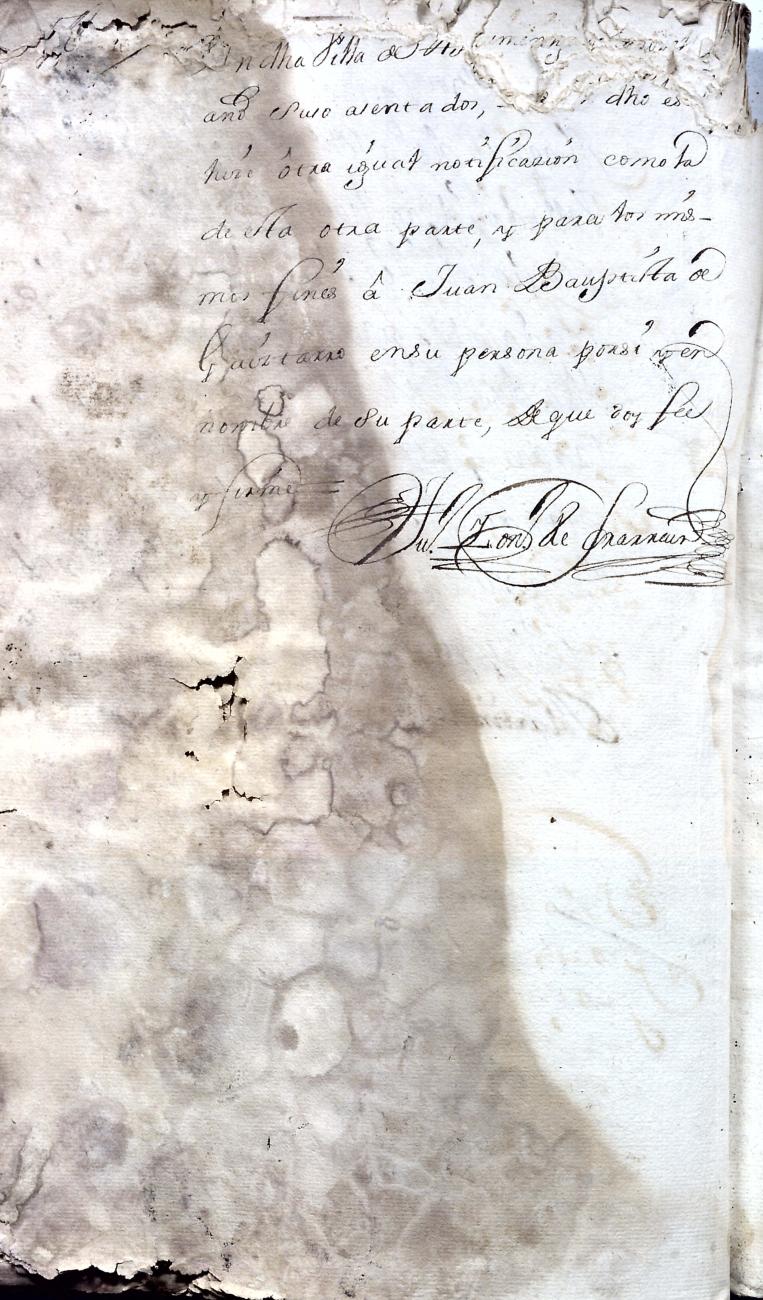 En dha Villa de
año suso asentados, dho es
hize ótra igual notificazión como la
de esta otra parte, y para los mis-
mos fines â Juan Bauptista de
Gaiztarro en su persona por sí y en
nombre de su parte, de que doy fee
y firmé =